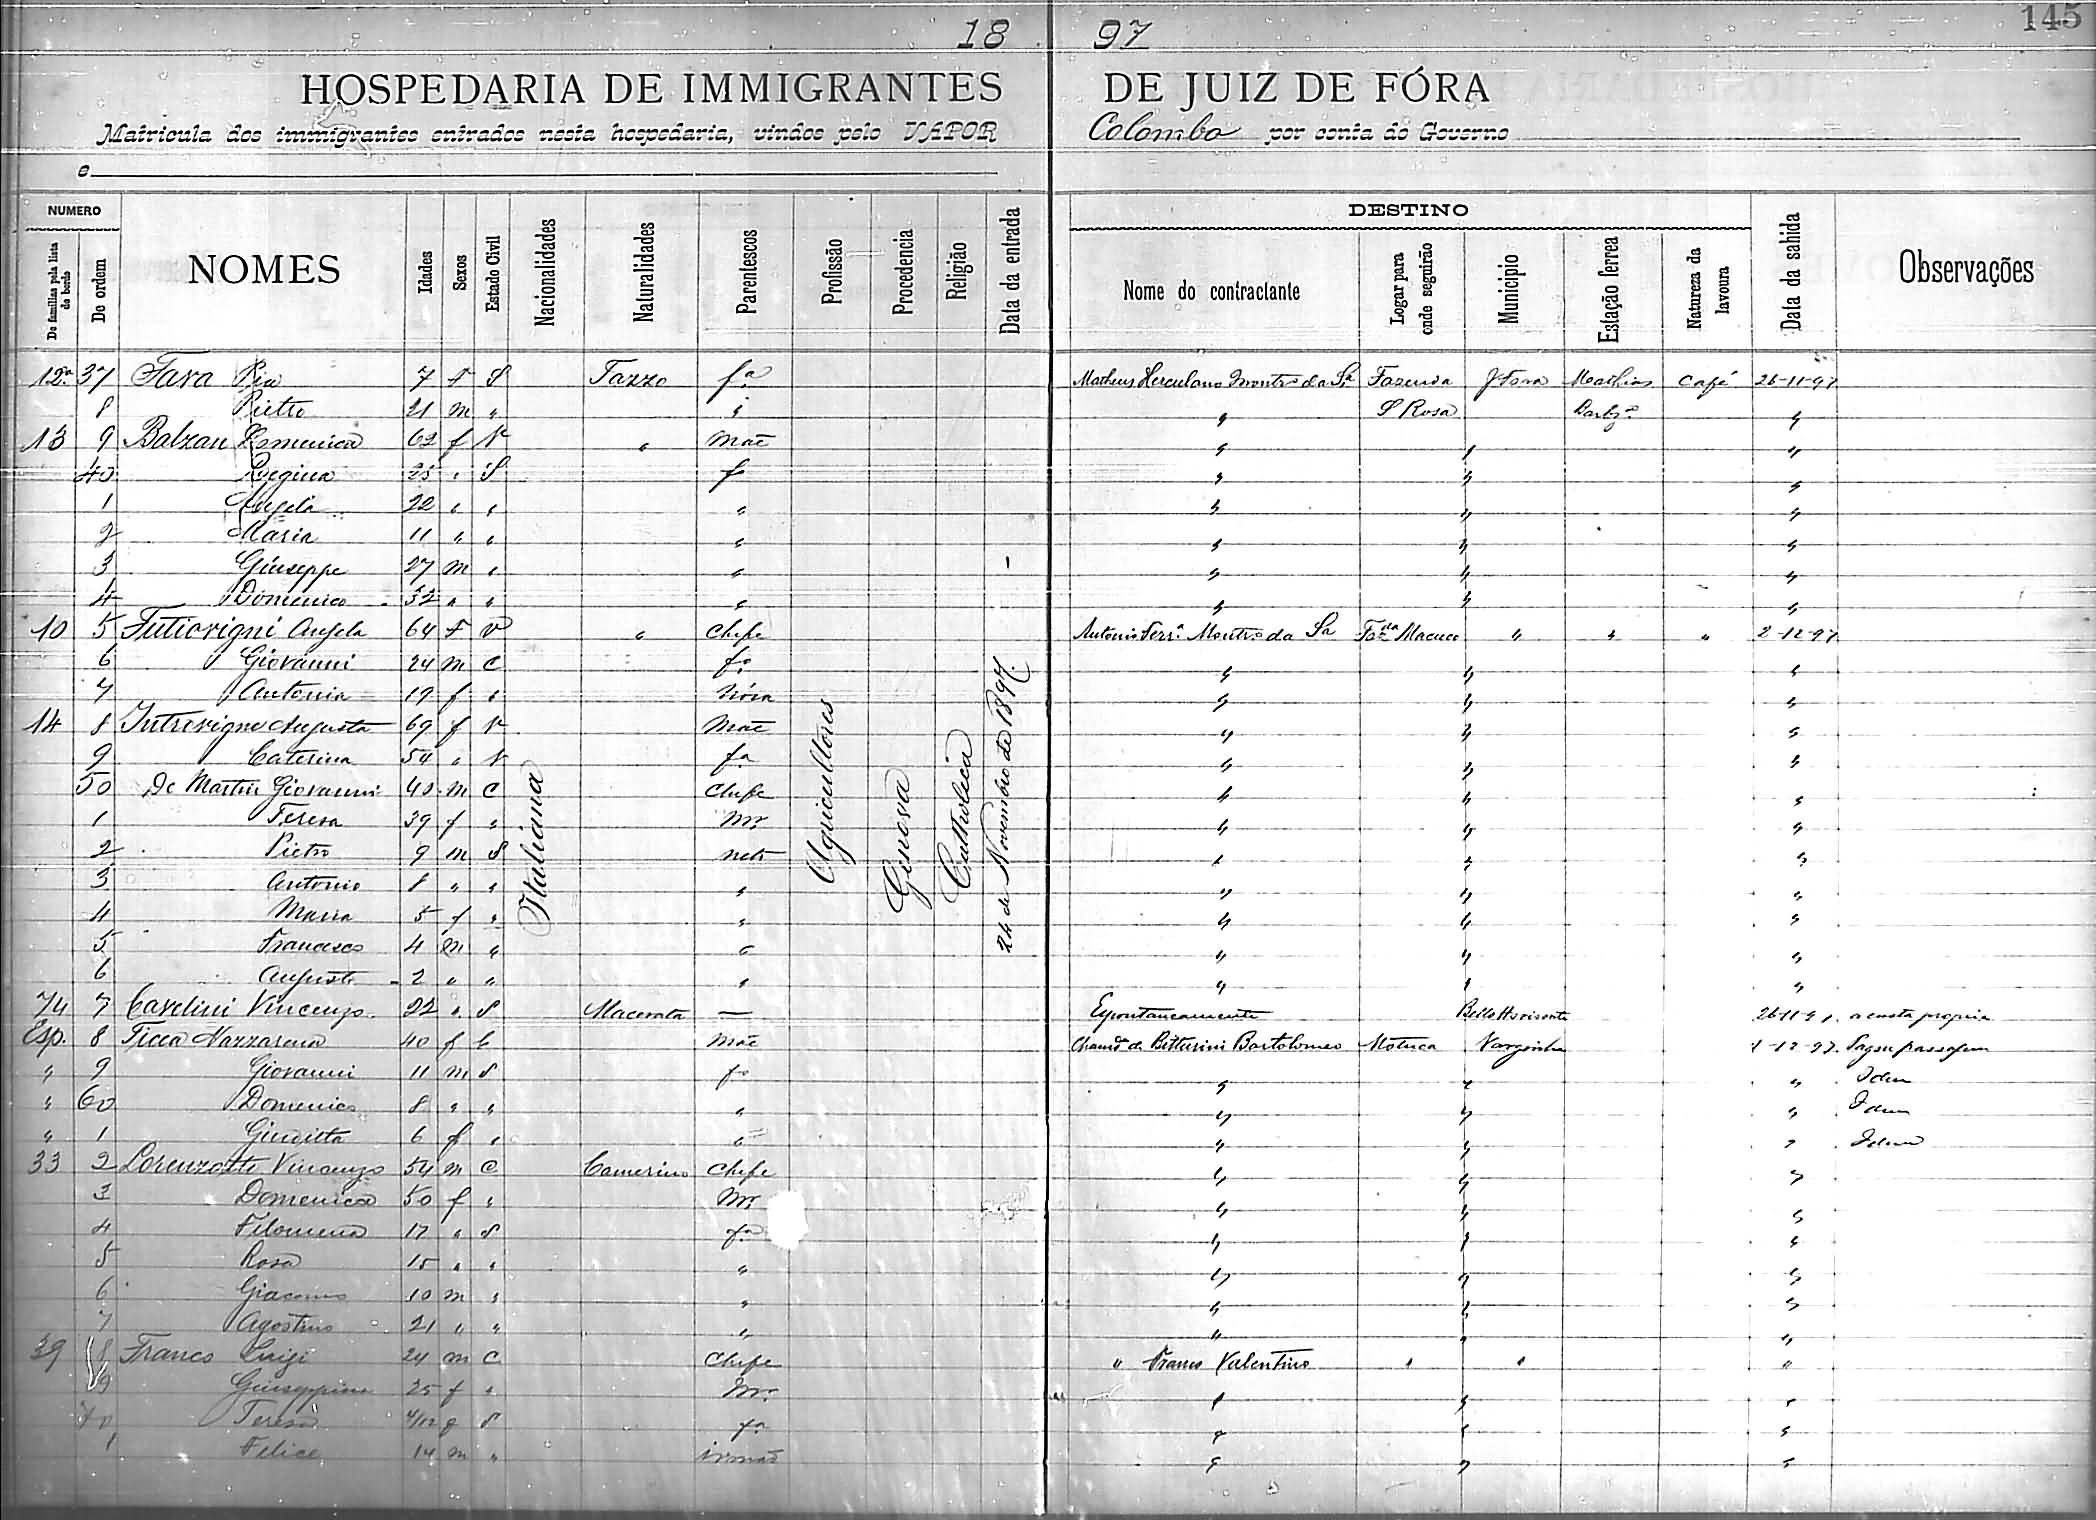 145
18 97
HOSPEDARIA DE IMMIGRANTES DE JUIZ DE FÓRA
Matricula dos immigrantes entrados nesta hospedaria, vindos pelo VAPOR Colombo por conta do Governo
e
NUMERO
De familias pela lista de bordo
De ordem
NOMES
Idades
Sexos
Estado Civil
Nacionalidades
Naturalidades
Parentescos
Profissão
Procedencia
Religião
Data da entrada
DESTINO
Nome do contractante
Logar para onde seguirão
Municipio
Estação ferrea
Natureza da lavoura
Data da sahida
Observações
Italiana
Agricultores
Genova
Catholica
24 de Novembro de 1897.
12ª 37 Fava Pia 7 F S Tazzo fª Matheus Herculano Montrº da Sª Fazenda J Fora Mathias Café 26-11-97
8 Pietro 21 m " " " S Rosa Barbª "
13 9 Balzan Domenica 62 f V " Mãe " " "
40 Regina 25 " S fª " " "
1 Angela 22 " " " " " "
2 Maria 11 " " " " " "
3 Giuseppe 27 m " " " " "
4 Domenico 32 " " " " " "
10 5 Angela 64 F V " Chefe Antonio Ferrª Montrº da Sª Fazda Macuco " " " 2-12-97
6 Giovanni 24 m C fº " " "
7 Antonia 19 f " Nóra " " "
14 8 Augusta 69 f V Mãe " " "
9 Caterina 54 " V fª " " "
50 De Martin Giovanni 40 m C Chefe " " "
1 Teresa 39 f " Mr " " "
2 Pietro 9 m S neto " " "
3 Antonio 8 " " " " " "
4 Maria 5 f " " " " "
5 Francesco 4 m " " " " "
6 Augusto 2 " " " " " "
74 7 Carelini Vincenzo 22 " S Macerata — Espontaneamente Bello Horisonte 26-11-97 a custa propria
Esp. 8 Ticca Nazzarena 40 f C Mãe Chamdº de Bitturini Bartolomeo Motuca Varginha 1-12-97 Pagou passagem
" 9 Giovanni 11 m S fº " " " Idem
" 60 Domenico 8 " " " " " " Idem
" 1 Giuditta 6 f " " " " " Idem
33 2 Lorenzotti Vincenzo 54 m C Camerino Chefe " " "
3 Domenica 50 f " Mr " " "
4 Filomena 17 " S fª " " "
5 Rosa 15 " " " " " "
6 Giacomo 10 m " " " " "
7 Agostino 21 " " " " " "
39 8 Franco Luigi 24 m C Chefe " Franco Valentino " " "
9 Giuseppina 25 f " Mr " " "
70 Teresa 4/12 f S fª " " "
1 Felice 14 m " irmão " " "